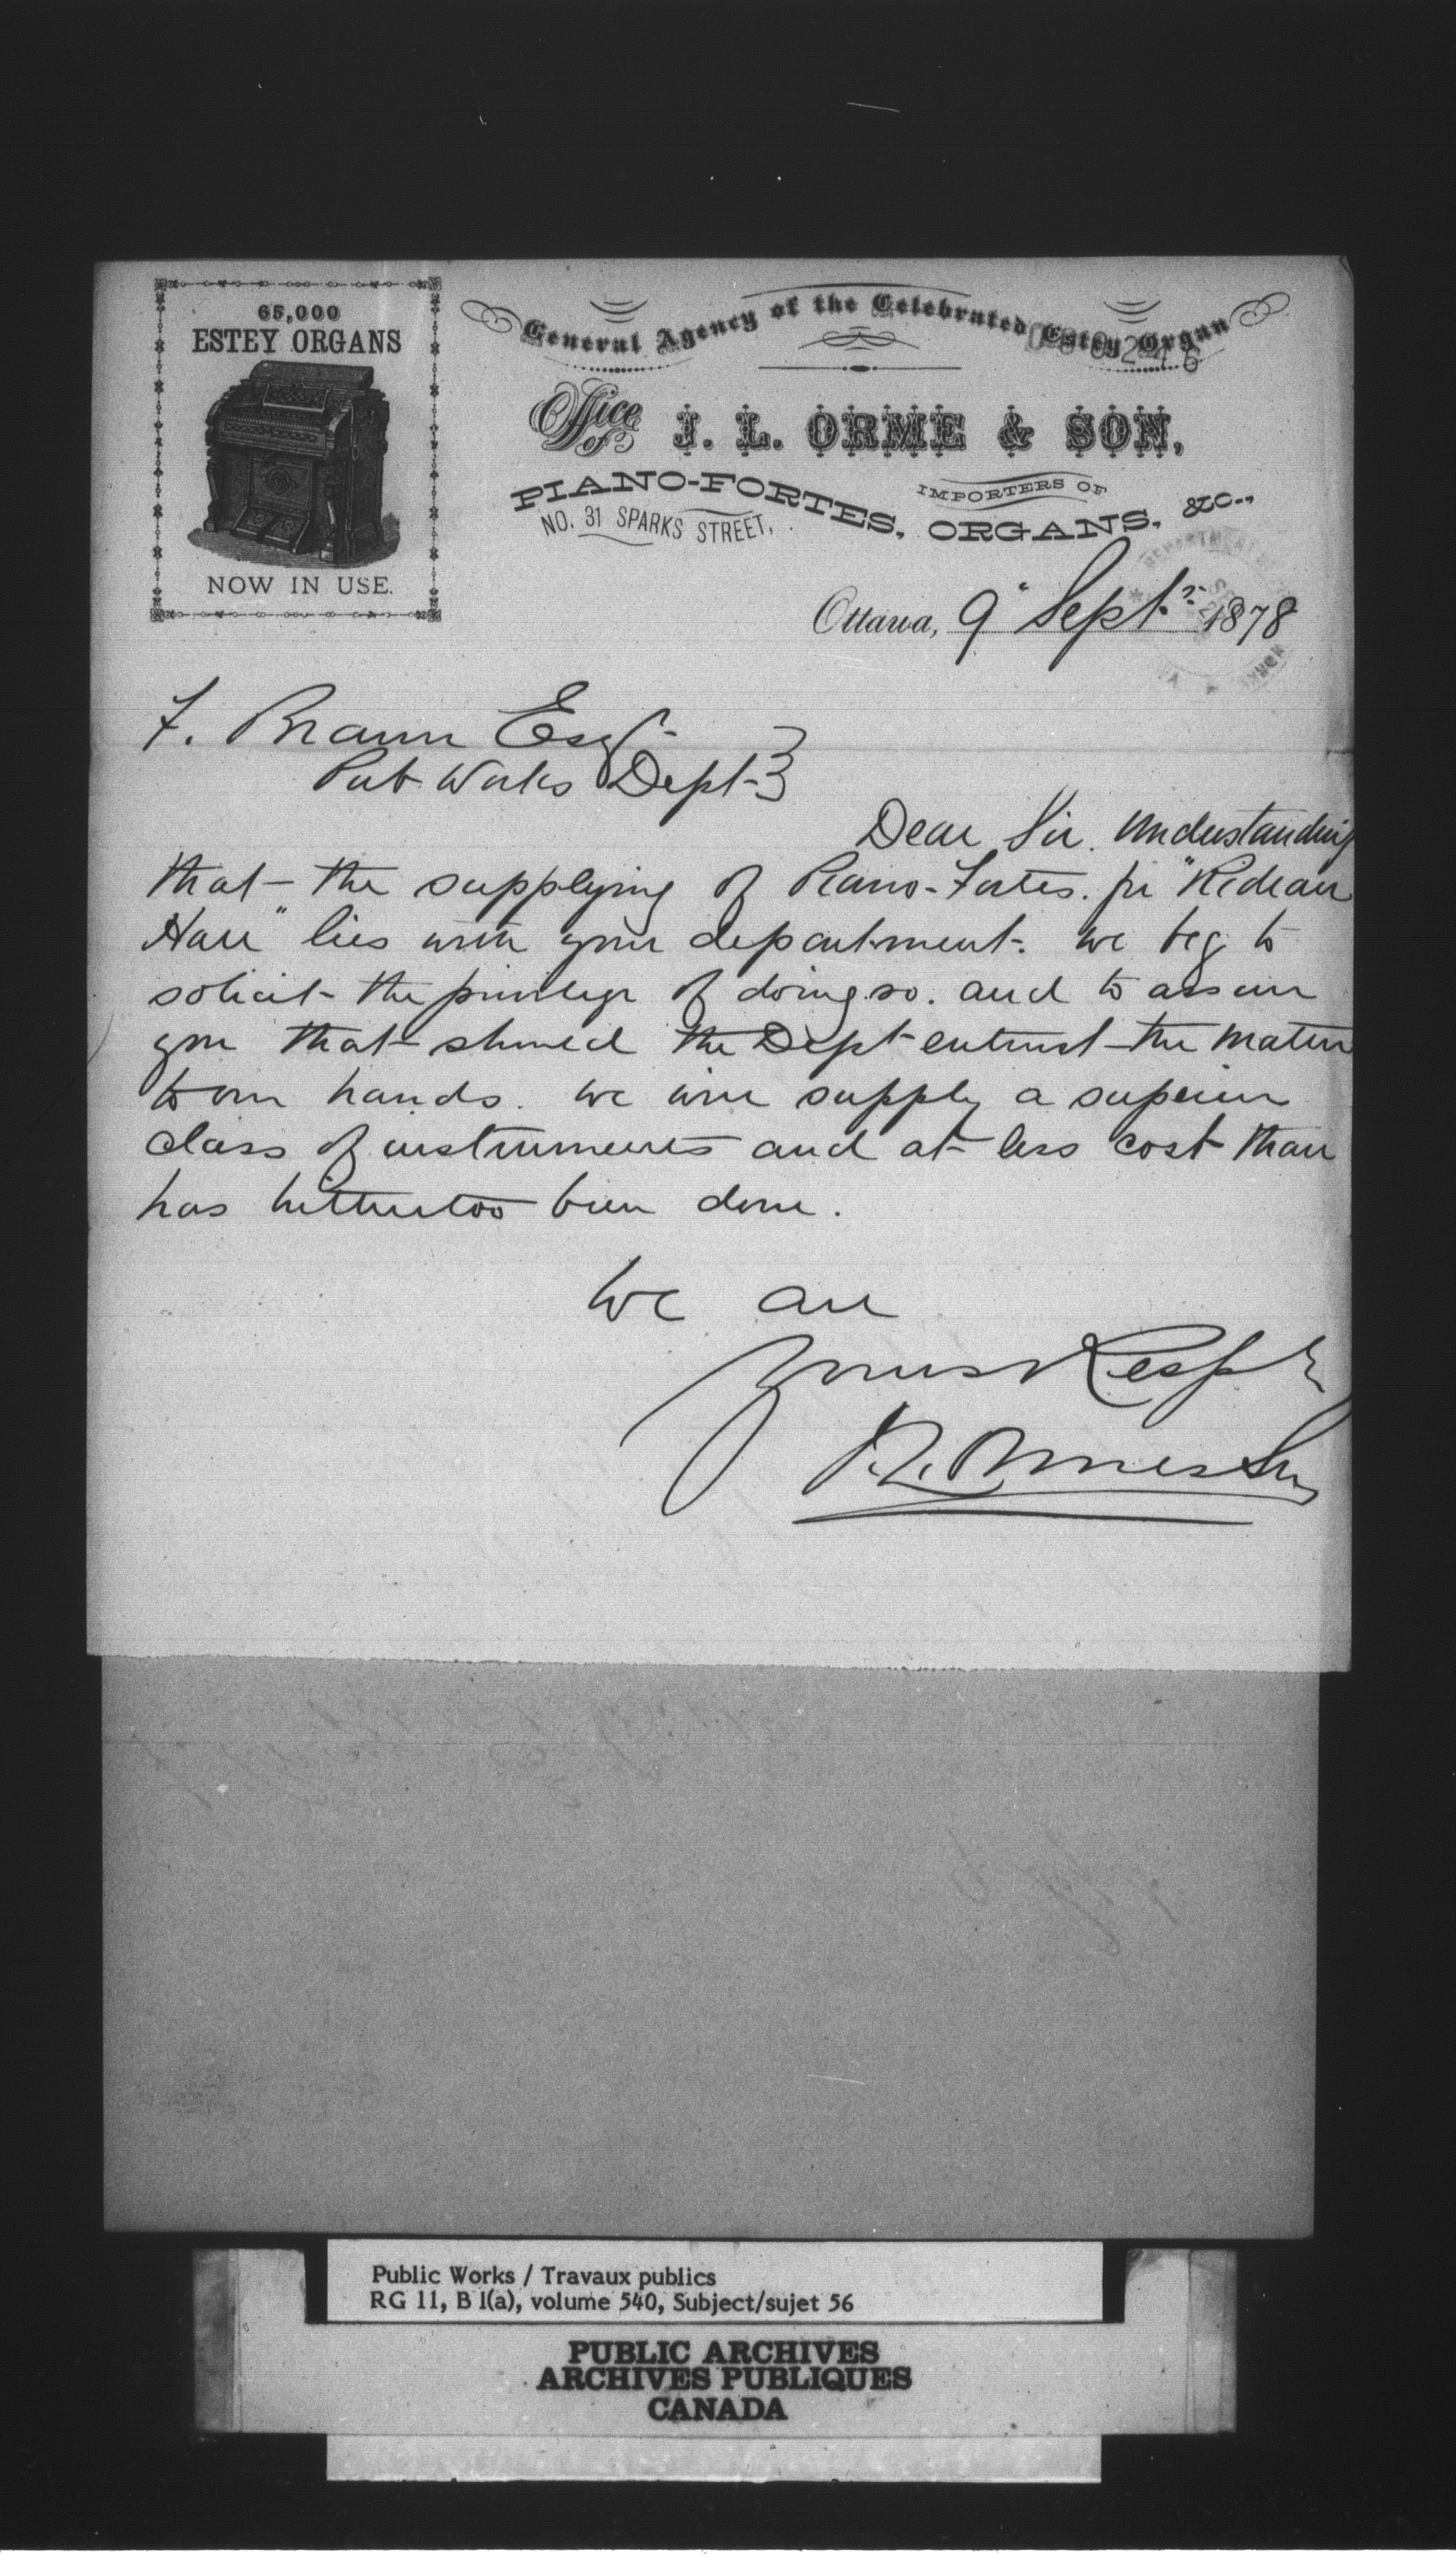 65,000
ESTEY ORGANS
NOW IN USE.
General Agency of the Celebrated Estey Organ
Office of J. L. ORME & SON,
IMPORTERS OF
PIANO-FORTES, ORGANS, &C.,
NO. 31 SPARKS STREET,
Ottawa, 9" Septr 1878
F. Braun Esqr
Pub Works Dept
Dear Sir. Understanding
that the supplying of Piano-Fortes. for "Rideau
Hall" lies with your department. we beg to
solicit the privilege of doing so. and to assure
you that should the Dept entrust the matter
to our hands. we will supply a superior
class of instruments and at less cost than
has hithertoo been done.
We are
Yours Respy
J. L. Orme & Son
Public Works / Travaux publics
RG 11, B 1(a), volume 540, Subject/sujet 56
PUBLIC ARCHIVES
ARCHIVES PUBLIQUES
CANADA